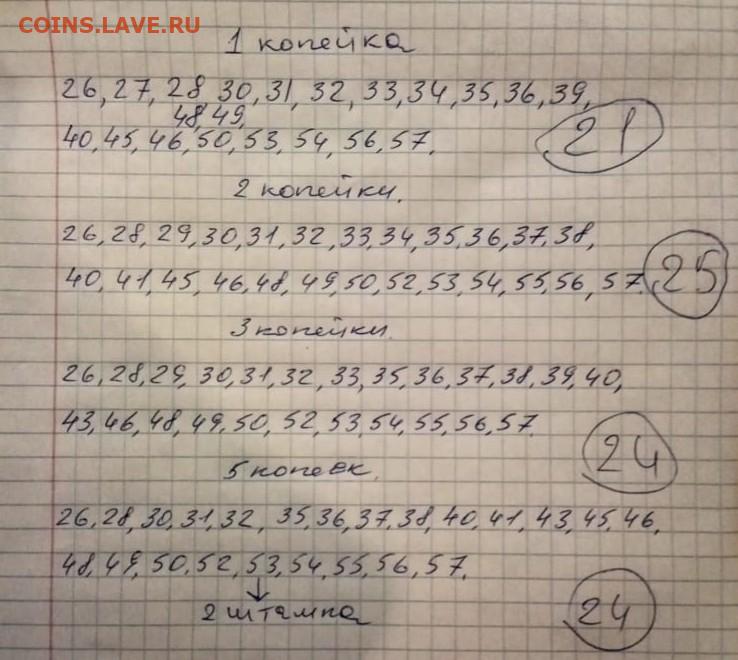 COINS.LAVE.RU
1 копейка
26, 27, 28, 30, 31, 32, 33, 34, 35, 36, 39,
48, 49,
40, 45, 46, 50, 53, 54, 56, 57.
21
2 копейки.
26, 28, 29, 30, 31, 32, 33, 34, 35, 36, 37, 38,
40, 41, 45, 46, 48, 49, 50, 52, 53, 54, 55, 56, 57.
25
3 копейки.
26, 28, 29, 30, 31, 32, 33, 35, 36, 37, 38, 39, 40,
43, 46, 48, 49, 50, 52, 53, 54, 55, 56, 57.
24
5 копеек.
26, 28, 30, 31, 32, 35, 36, 37, 38, 40, 41, 43, 45, 46,
48, 49, 50, 52, 53, 54, 55, 56, 57.
2 штампа
24